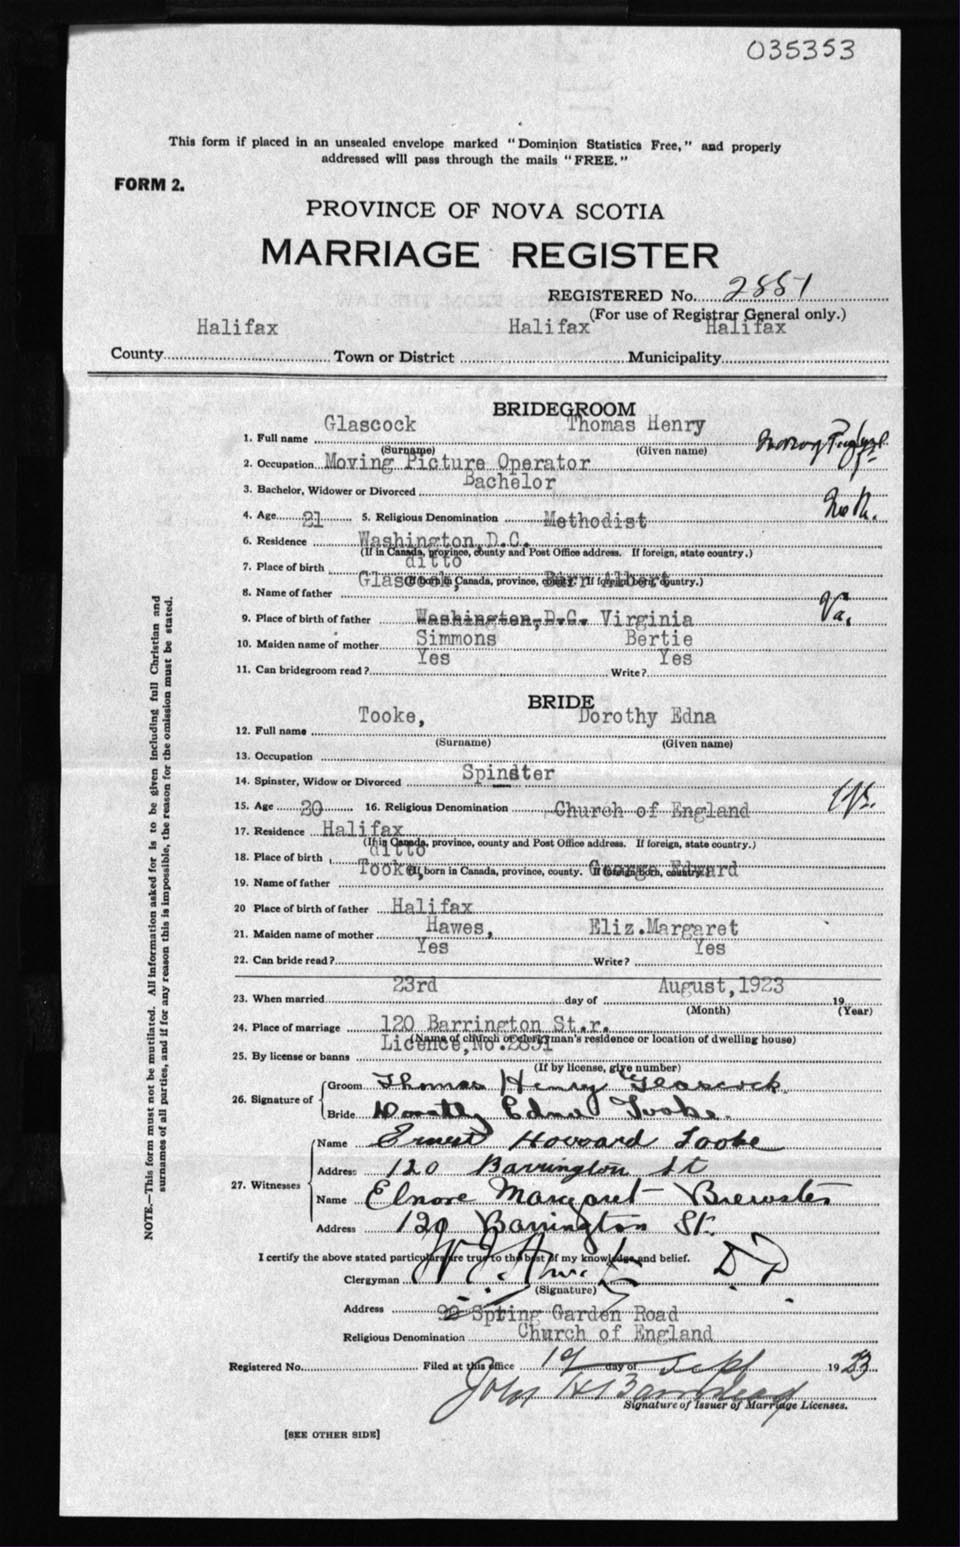 035353
This form if placed in an unsealed envelope marked "Dominion Statistics Free," and properly
addressed will pass through the mails "FREE."
FORM 2.
PROVINCE OF NOVA SCOTIA
MARRIAGE REGISTER
REGISTERED No. 2881
(For use of Registrar General only.)
Halifax Halifax Halifax
County Town or District Municipality
BRIDEGROOM
Glascock Thomas Henry
1. Full name
(Surname) (Given name)
2. Occupation Moving Picture Operator
Bachelor
3. Bachelor, Widower or Divorced
4. Age 21 5. Religious Denomination Methodist
6. Residence Washington, D.C.
(If in Canada, province, county and Post Office address. If foreign, state country.)
ditto
7. Place of birth
Glascock, Albert
(If born in Canada, province, county. If foreign born, country.)
8. Name of father
Va.
9. Place of birth of father Washington, D.C. Virginia
10. Maiden name of mother Simmons Bertie
Yes Yes
11. Can bridegroom read? Write?
BRIDE
Tooke, Dorothy Edna
12. Full name
(Surname) (Given name)
13. Occupation
14. Spinster, Widow or Divorced Spinster
15. Age 20 16. Religious Denomination Church of England
17. Residence Halifax
(If in Canada, province, county and Post Office address. If foreign, state country.)
ditto
18. Place of birth
Tooke, George Edward
(If born in Canada, province, county. If foreign born, country.)
19. Name of father
20 Place of birth of father Halifax
21. Maiden name of mother Hawes, Eliz.Margaret
Yes Yes
22. Can bride read? Write?
23rd August,1923
23. When married day of 19
(Month) (Year)
24. Place of marriage 120 Barrington St.r.
(Name of church or clergyman's residence or location of dwelling house)
Licence,No.2851
25. By license or banns
(If by license, give number)
26. Signature of Groom Thomas Henry Glascock
Bride Dorothy Edna Tooke.
27. Witnesses Name Ernest Howard Tooke
Address 120 Barrington St
Name Elnore Margaret Brewster
Address 120 Barrington St.
I certify the above stated particulars are true to the best of my knowledge and belief.
Clergyman
(Signature)
Address 92 Spring Garden Road
Religious Denomination Church of England
Registered No. Filed at this office 19 day of Sept 1923
John H Barnstead
Signature of Issuer of Marriage Licenses.
[SEE OTHER SIDE]
NOTE.—This form must not be mutilated. All information asked for is to be given including full Christian and
surnames of all parties, and if for any reason this is impossible, the reason for the omission must be stated.